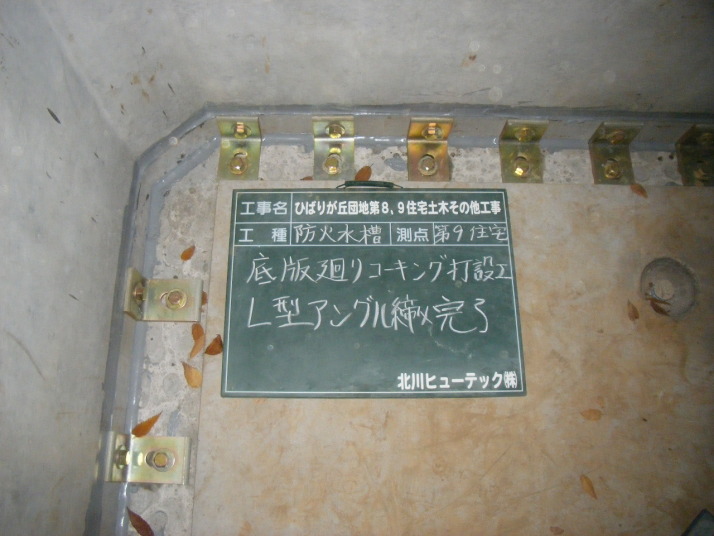 工事名 ひばりが丘団地第8,9住宅土木その他工事
工種 防火水槽 測点 第9住宅
底版廻りコーキング打設工
L型アングル締め完了
北川ヒューテック㈱